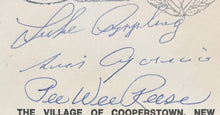 Luke Appling
Luis Aparicio
Pee Wee Reese
THE VILLAGE OF COOPERSTOWN, NEW